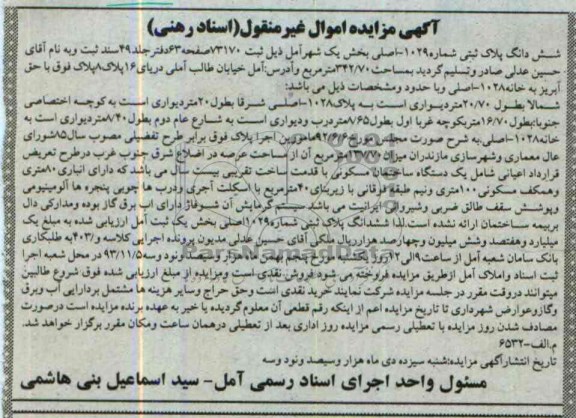 آگهی مزایده اموال غیرمنقول(اسناد رهنی)
شش دانگ پلاک ثبتی شماره۱۰۲۹-اصلی بخش یک شهرآمل ذیل ثبت ۷۳۱۷۰صفحه۶۳دفترجلد۴۹سند ثبت وبه نام آقای
حسین عدلی صادر وتسلیم گردید بمساحت۳۴۲/۷۰مترمربع وآدرس:آمل خیابان طالب آملی دریای۱۶پلاک۸پلاک فوق با حق
آبریز به خانه۱۰۲۸-اصلی وبا حدود ومشخصات ذیل می باشد:
شمالا بطول ۲۰/۷۰متردیواری است به پلاک۱۰۲۸-اصلی شرقا بطول۲۰متردیواری است به کوچه اختصاصی
جنوبا:بطول۱۶/۷۰متربکوچه غربا اول بطول۸/۶۵متردرب ودیواری است به شارع عام دوم بطول۸/۴۰متردیواری است به
خانه۱۰۲۸-اصلی.به شرح صورت مجلس مورخ۹۲/۶/۶مامورین اجرا پلاک فوق برابر طرح تفضیلی مصوب سال۸۵شورای
عال معماری وشهرسازی مازندران میزان مترمربع آن از مساحت عرصه در اضلاع شرق جنوب غرب درطرح تعریض
قرارداد اعیانی شامل یک دستگاه ساختمان مسکونی با قدمت ساخت تقریبی بیست سال می باشد که دارای انباری۸۰متری
وهمکف مسکونی۱۰۰متری ونیم طبقه فوقانی با زیربنای۴۰مترمربع با اسکلت آجری ودرب ها چوبی پنجره ها آلومینیومی
وپوشش سقف طالق ضربی وشیروانی ایرانیت می باشد سیستم گرمایش آن شوفاژ دارای اب برق گاز بوده ومدارکی دال
بربیمه ساختمان ارائه نشده است.لذا ششدانگ پلاک ثبتی شماره۱۰۲۹اصلی بخش یک ثبت آمل ارزیابی شده به مبلغ یک
میلیارد وهفتصد وشش میلیون وچهارصد هزارریال ملکی آقای حسین عدلی مدیون پرونده اجرایی کلاسه و/۴۰۳به طلبکاری
بانک سامان شعبه آمل از ساعت۹الی هزار ونود وسه۹۳/۱۱/۵ در محل شعبه اجرا
ثبت اسناد واملاک آمل ازطریق مزایده فروخته می شود فروش نقدی است ومزایده از مبلغ ارزیابی شده فوق شروع طالبین
میتوانند دروقت مقرر در جلسه مزایده شرکت نمایند خرید نقدی است وحق حراج وسایر هزینه ها مشتمل بردارایی آب وبرق
وگازوعوارض شهرداری تا تاریخ مزایده اعم از اینکه رقم قطعی آن معلوم گردیده یا خیر به عهده برنده مزایده است درصورت
مصادف شدن روز مزایده با تعطیلی رسمی مزایده روز اداری بعد از تعطیلی درهمان ساعت ومکان مقرر برگزار خواهد شد.
م.الف-۶۵۳۲
تاریخ انتشارآگهی مزایده:شنبه سیزده دی ماه هزار وسیصد ونود وسه
مسئول واحد اجرای اسناد رسمی آمل- سید اسماعیل بنی هاشمی